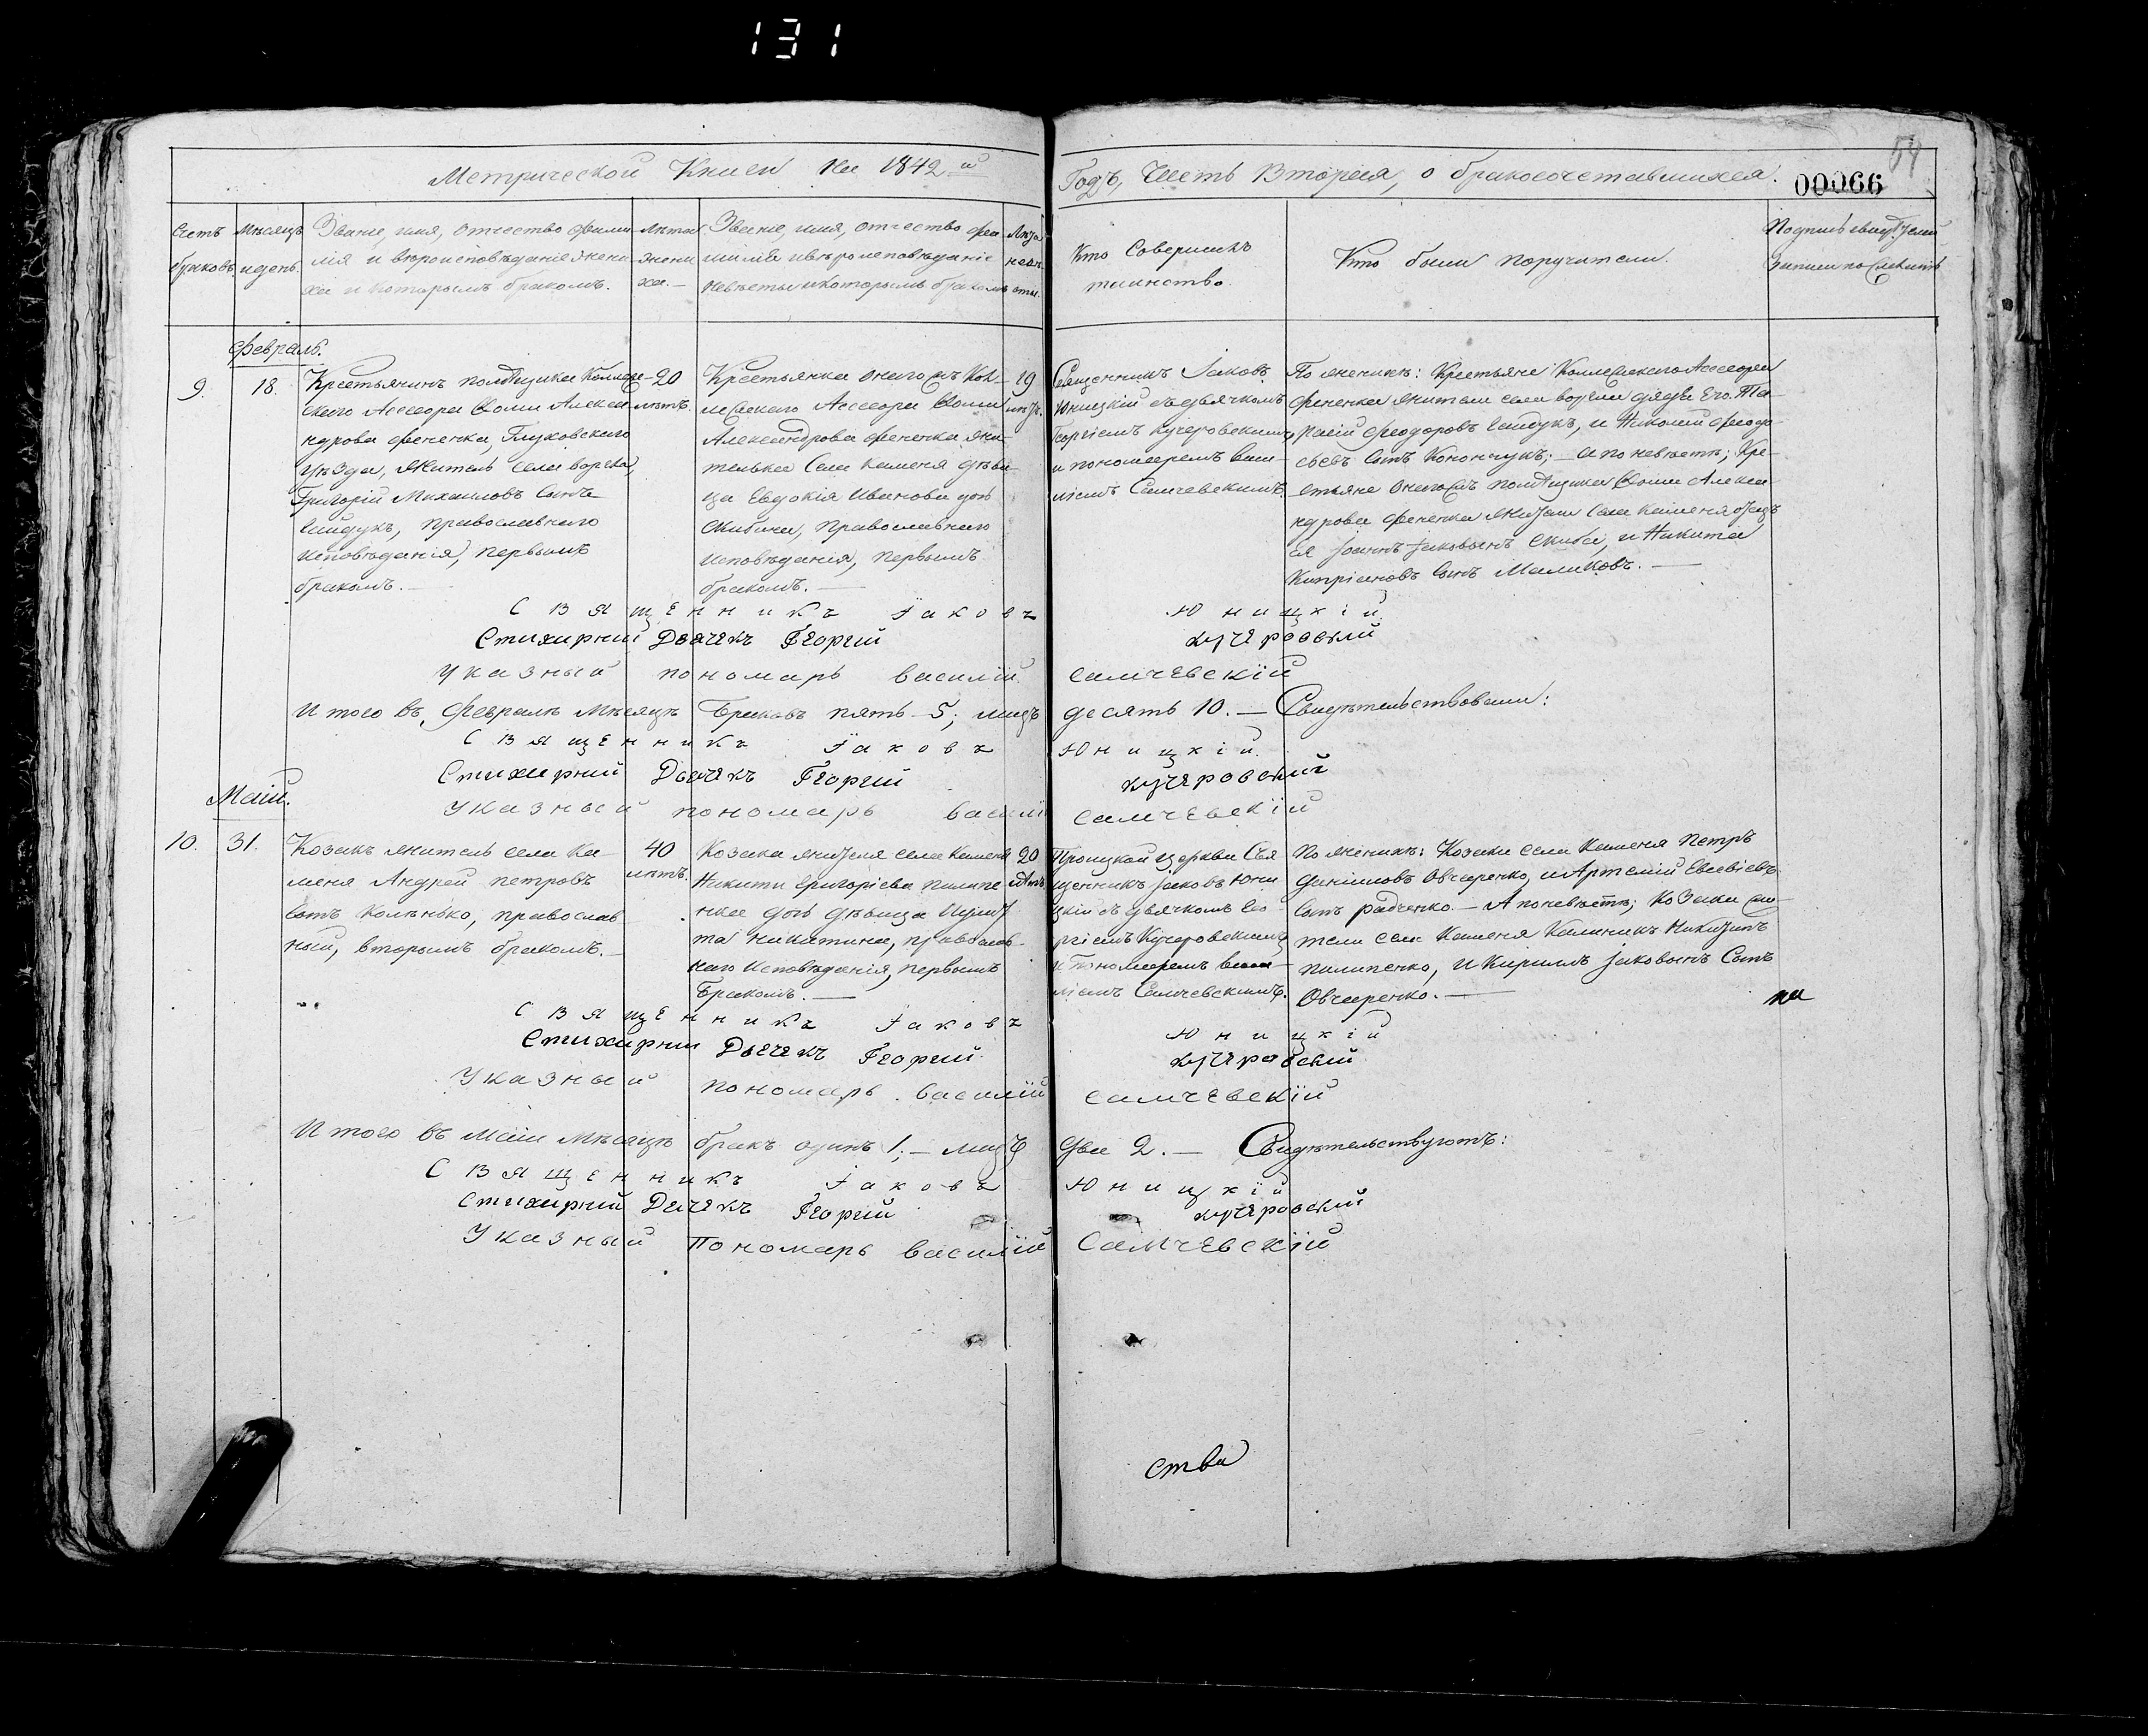 131
54
00066
Метрической Книги На 1842 й
Годъ, Часть Вторая, о бракосочетавшихся.
Счетъ браковъ.
Мѣсяцъ и день.
Званіе, имя, отчество фами-
лія и вѣроисповѣданіе жени-
ха и которымъ бракомъ.
Лѣта
жени
ха.
Званіе, имя, отчество фа-
милія и вѣроисповѣданіе
невѣсты и которымъ бракомъ
Лѣта
невѣ-
сты.
Кто Совершилъ
таинство.
Кто были поручители.
Подпись свидѣтелей
записи по
Февраль.
9.
18.
Крестьянинъ помѣщика Коллеж-
скаго Асессора Алекса-
ндрова Фененка, Глуховскаго
уѣзда, Житель села
Григорій Михаиловъ Сынъ
Гайдукъ, православнаго
исповѣданія, первымъ
бракомъ.
20
лѣтъ.
Крестьянка онагожъ Кол-
лежскаго Асессора
Александрова Фененка жи-
телька Села Каменя дѣви-
ца Евдокія Иванова дочь
Скибина, православнаго
исповѣданія, первымъ
бракомъ.
19
лѣтъ.
Священникъ Іаковъ
Юницкій съ дьячкомъ
Георгіемъ Кучеровскимъ
и пономаремъ Васи-
ліемъ Самчевскимъ
По женихѣ: Крестьяне Коллежскаго Асессора
Фененка жители села дядя Его
Феодоровъ Гайдукъ, и Николай
Сынъ Конончукъ; А по невѣстѣ; Кре-
стьяне онагожъ помѣщика Алекса-
ндрова Фененка жители Села Каменя отецъ
ея Іоаннъ Іаковлевъ Скиба, и Никита
Кипріановъ Сынъ Маликовъ.
Священникъ Іаковъ Юницкій
Стихарный Дьячекъ Георгій Кучеровскій
Указный пономарь Василій Самчевскій
И того въ Февралѣ Мѣсяцѣ Браковъ пять 5; лицъ десять 10. Свидѣтельствовали:
Священникъ Іаковъ Юницкій
Стихарный Дьячекъ Георгій Кучеровскій
Указный пономарь Василій Самчевскій
Маій.
10.
31.
Козакъ житель села Ка-
меня Андрей Петровъ
Сынъ Коленько, православ
ный, вторымъ бракомъ.
40
лѣтъ.
Козака жителя села Каменя
Никити Григоріева Пилипе
нка дочь дѣвица
Никитина, православ-
наго исповѣданія, первымъ
Бракомъ.
20
лѣтъ
Троицкой церкви Свя
щенникъ Іаковъ Юни
цкій съ дьячкомъ Гео-
ргіемъ Кучеровскимъ
и Пономаремъ Васи-
ліемъ Самчевскимъ.
По женихѣ: Козаки села Каменя Петръ
Даніиловъ Овчаренко, и Артемій Евсевіевъ
Сынъ Радченко. А по невѣстѣ; Козаки жи-
тели села Каменя Калиникъ Никитинъ
Пилипенко, и Кириллъ Іаковлевъ Сынъ
Овчаренко.
на
Священникъ Іаковъ Юницкій
Стихарный Дьячекъ Георгій Кучеровскій
Указный пономарь Василій Самчевскій
И того въ Маіи Мѣсяцѣ бракъ одинъ 1; лицъ два 2. Свидѣтельствуютъ:
Священникъ Іаковъ Юницкій
Стихарный Дьячекъ Георгій Кучеровскій
Указный Пономарь Василій Самчевскій
ства